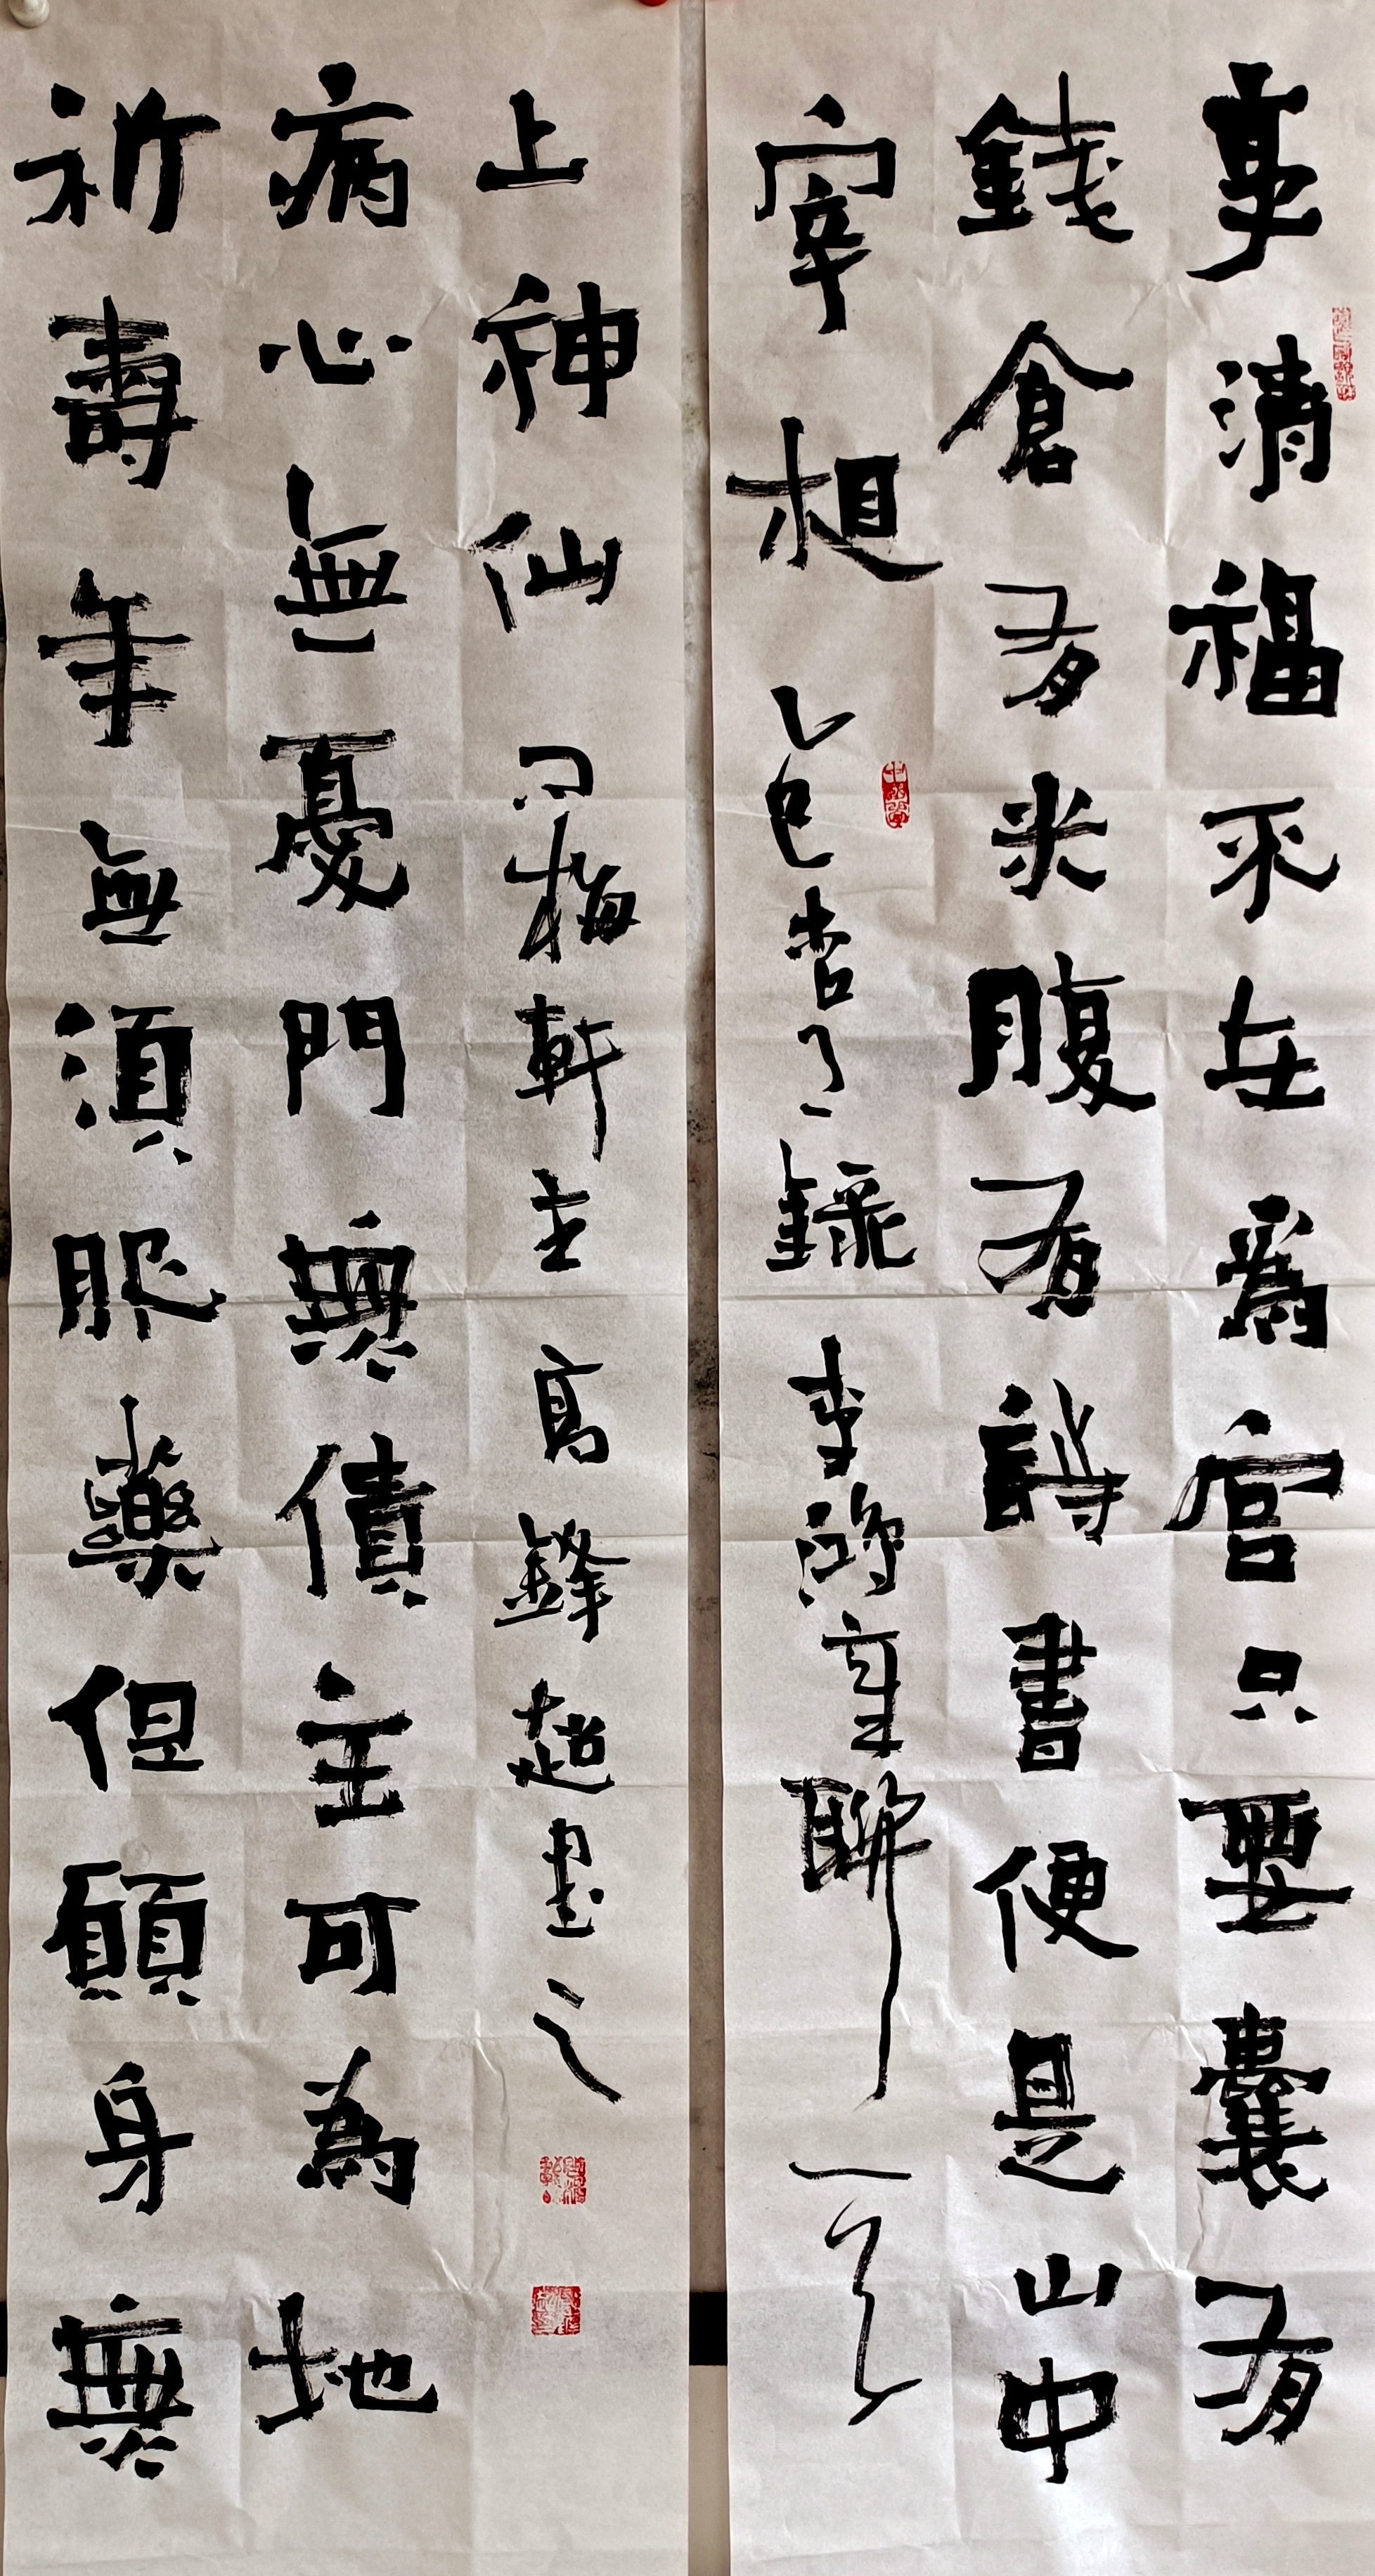 享清福不在爲官只要囊有
錢倉有米腹有詩書便是山中
宰相
乙巳杏月錄李鴻章聯一
祈壽年無須服藥但願身無
病心無憂門無債主可為地
上神仙
問梅軒主高鋒超書之